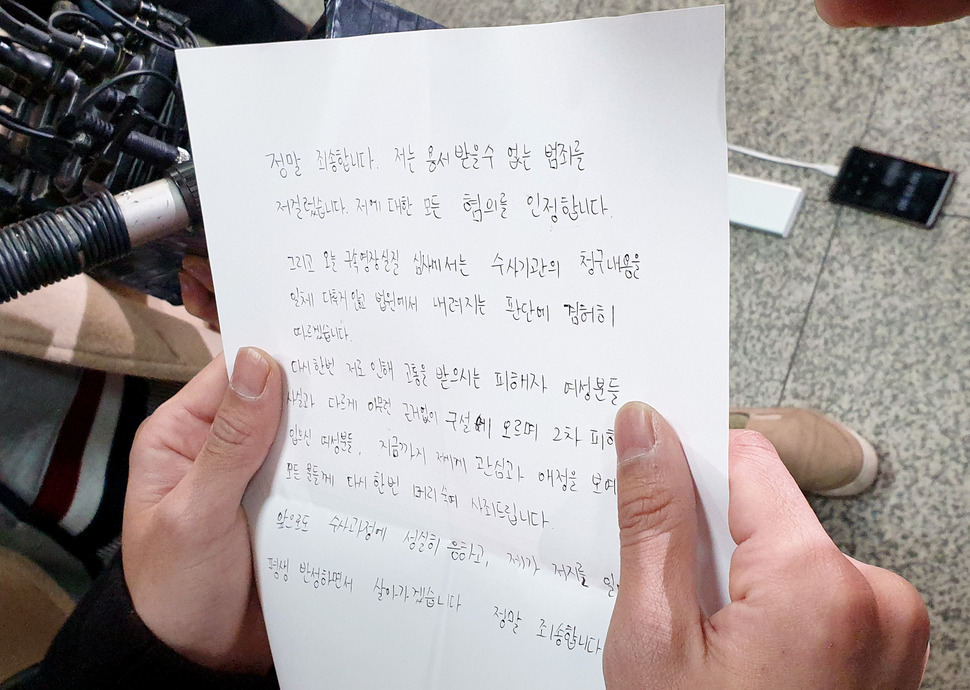 정말 죄송합니다. 저는 용서 받을수 없는 범죄를
저질렀습니다. 저에 대한 모든 혐의를 인정합니다.
그리고 오늘 구속영장실질 심사에서는 수사기관의 청구내용을
일체 다투지 않고 법원에서 내려지는 판단에 겸허히
따르겠습니다.
다시한번 저로 인해 고통을 받으시는 피해자 여성분들
사실과 다르게 아무런 근거없이 구설에 오르며 2차 피해
입으신 여성분들, 지금까지 제게 관심과 애정을 보여
모든 분들께 다시 한번 머리숙여 사죄드립니다.
앞으로도 수사과정에 성실히 응하고, 제가 저지를
평생 반성하면서 살아가겠습니다 정말 죄송합니다